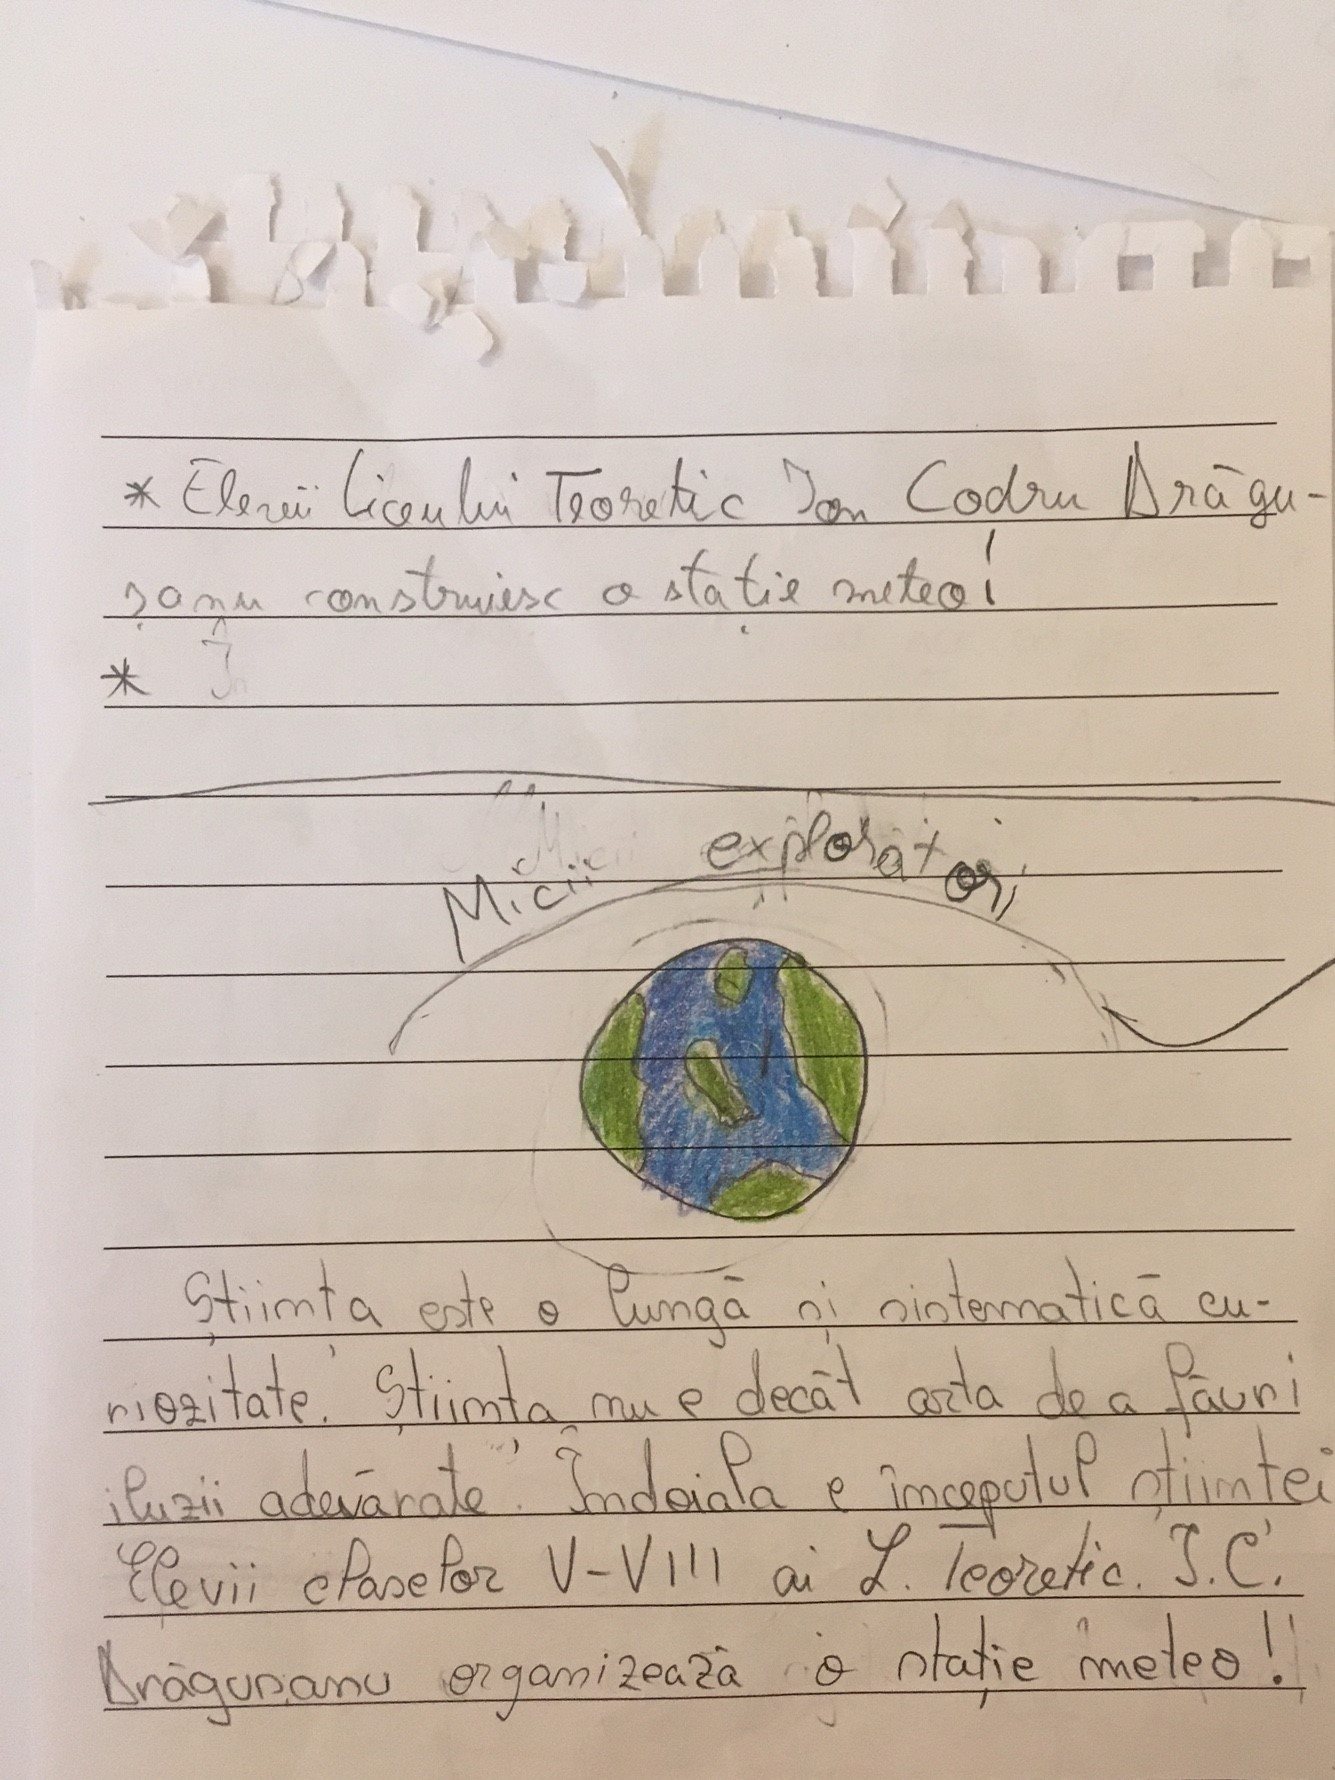 * Elevii Liceului Teoretic Ion Codru Drăgu-
șanu construiesc o stație meteo!
* În
Micii exploratori
Știința este o lungă și sistematică cu-
riozitate. Știința nu e decât arta de a făuri
iluzii adevărate. Îndoiala e începutul științei
Elevii claselor V-VIII ai L. Teoretic. I.C.
Drăgusanu organizează o stație meteo!